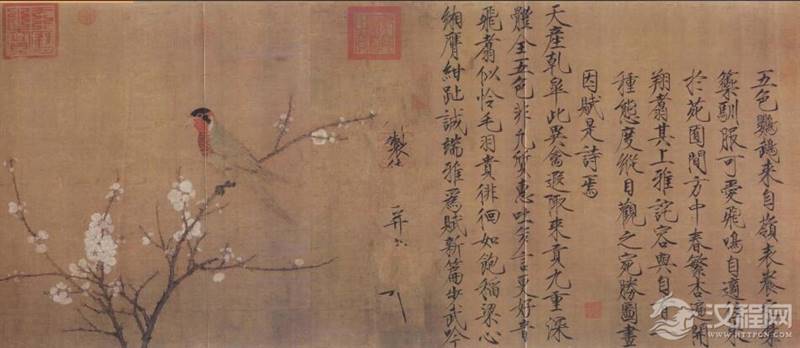 五色鸚鵡來自嶺表養
籞馴服可愛飛鳴自適
於苑囿間方中春繁杏遍開
翔翥其上雅詫容與自有一
種態度縱目觀之宛勝圖畫
因賦是詩焉
天產乾皐此異禽遐陬來貢九重深
體全五色非凡質惠吐多言更好音
飛翥似憐毛羽貴徘徊如飽稻粱心
緗膺紺趾誠端雅為賦新篇步武吟
製
汉程网
HTTPCN.COM